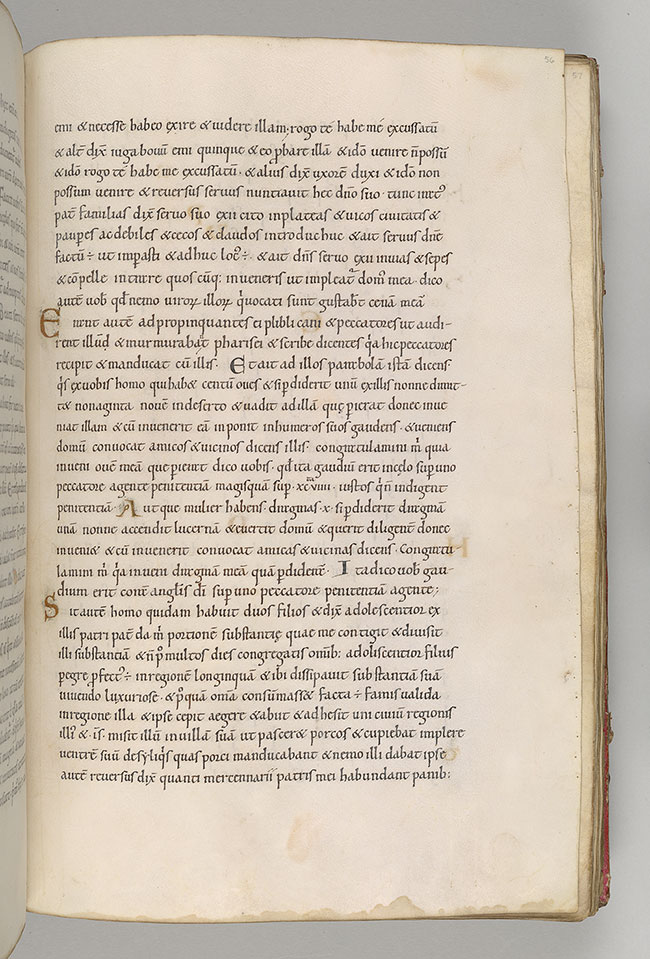 56
57
emi & necesse habeo exire & uidere illam, rogo te habe me excussatū
& alt̄ dix̄ iuga bouū emi quinque & eo ꝓbare illa & idō uenire n̄ possū
& idō rogo te habe me excussatū · & alius dix̄ uxorē duxi & idō non
possum uenire & reuersus seruus nuntiauit hec dnō suo · tunc
pat̄ familias dix̄ seruo suo exii cito inplateas & uicos ciuitatis &
pauꝑes ac debiles & cecos & claudos introduc huc & ait seruus dn̄e
factū ÷ ut imꝑasti & adhuc loc᷒ ÷ & ait dn̄s seruo exii inuias & sepes
& cōpelle intrare quos cūq; inueneris ut impleat̄ dom᷒ mea · dico
autē uob qđ nemo uiroꝝ illoꝝ uocati sunt gustab̄t cenā meā
Erant autē adpropinquantes ei publicani & peccatores ut audi-
rent illūd & murmurabāt pharisei & scribe dicentes q̄a hic peccatores
recipit & manducat cū illis · Et ait ad illos parabolam istā dicens·
q̄s ex uobis homo qui hab& centū oues & si ꝑdiderit unū exillis nonne dimit-
t& nonaginta nouē indeserto & uadit ad illā quę ꝑierat donec inue
niat illam & cū inuenerit eā inponit inhumeros suos gaudens · & ueniens
domū conuocat amicos & uicinos dicens illis congratulamini m̄ quia
inueni ouē meā que ꝑierat dico uobis · qđ ita gaudiū erit incęlo sup uno
peccatore agente penitentiā magisquā sup · xcviiii · iustos q̄ n̄ indigent
penitentiā · Aut que mulier habens dragmas · x · si ꝑdiderit dragmā
unā nonne accendit lucernā & euertit domū & querit diligent̄ donec
inueni& & cū inuenerit conuocat amicas & uicinas dicens · Congratu
lamini m̄ q̄a inueni dragmā meā quā ꝑdiderā · Ita dico uob gau-
dium erit corā anglis dī sup uno peccatore penitentiā agente;
Sit autē homo quidam habuit duos filios & dix̄ adolescentior ex
illis patri pat̄ da m̄ portionē substantię quae me contigit & diuisit
illi substantiā & n̄ p᷒ multos dies congregatis omīb; adoliscentior filius
pegre ꝓfect᷒ ÷ inregionē longinquā & ibi dissipauit substantiā suā
uiuendo luxuriose · & p᷒quā om̄a consūmass& facta ÷ famis ualida
inregione illa & ipse cepit aegere & abiit & adhesit uni ciuiū regionis
ill᷒ & · is · misit illū inuillā suā ut pascer& porcos & cupiebat implere
uentrē suū desyliq̄s quas porci manducabant & nemo illi dabat ipse
autē reuersus dix̄ quanti mercennarii patris mei habundant panib;